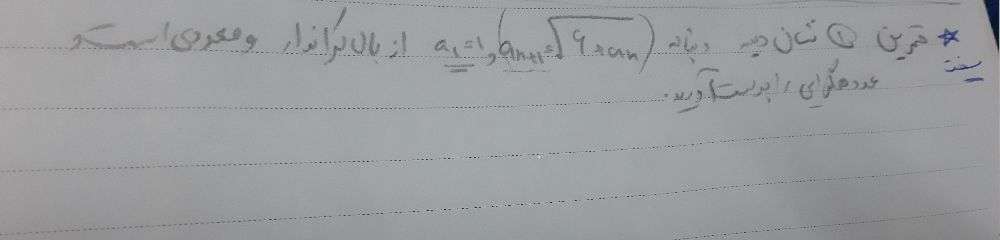 * تمرین ① نشان دهید دنباله (a₁=1 , aₙ₊₁=√(6+aₙ از بالا کراندار و صعودی است و
سخت
عدد همگرایی را بدست آورید.